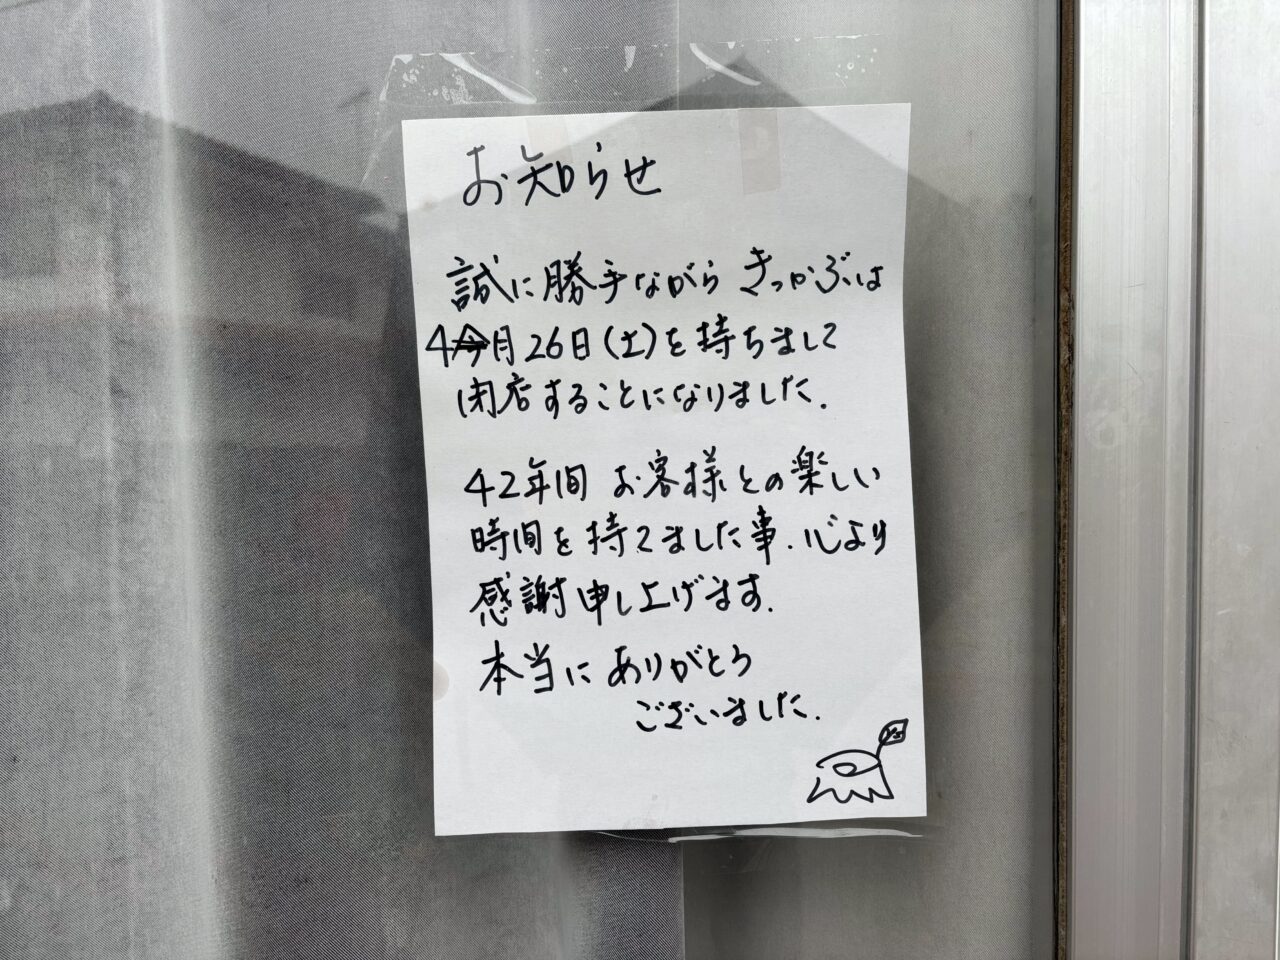 お知らせ
誠に勝手ながら きっかぶは
4月26日(土)を持ちまして
閉店することになりました.
42年間 お客様との楽しい
時間を持てました事.心より
感謝申し上げます.
本当に ありがとう
ございました.